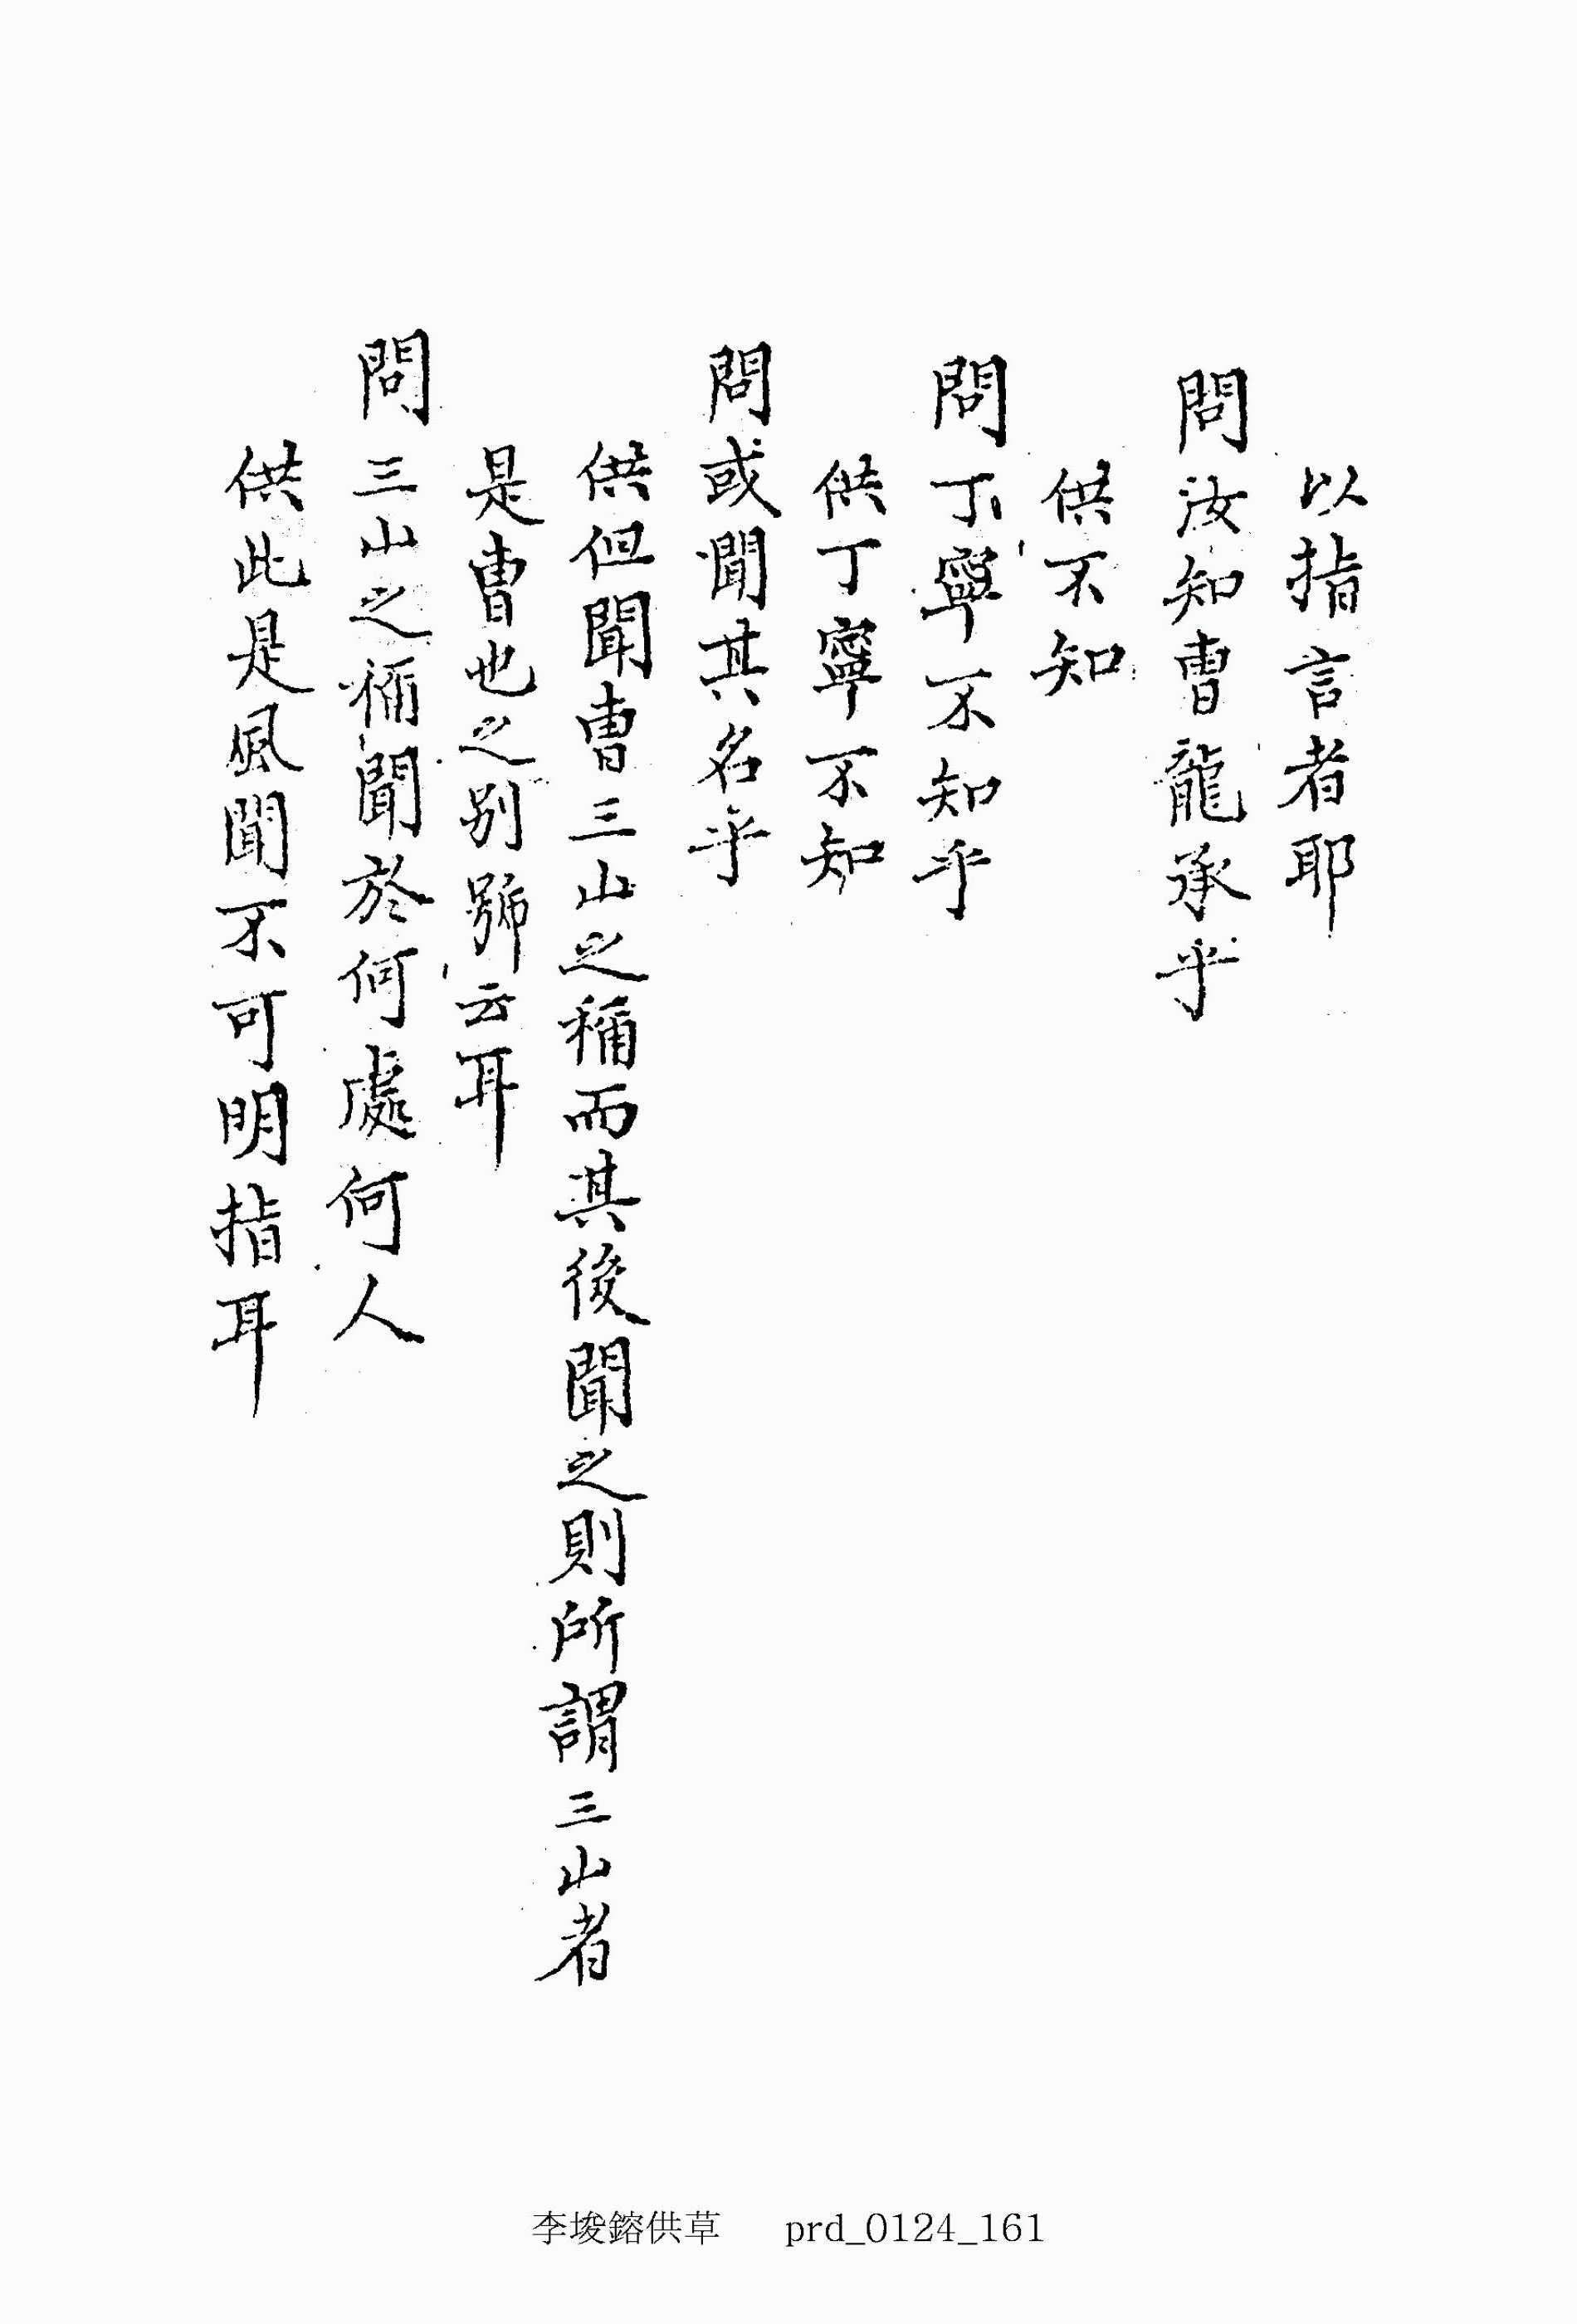 以指言者耶
問汝知曺龍承乎
供不知
問丁寧不知乎
供丁寧不知
問或聞其名乎
供但聞曺三山之稱而其後聞之則所謂三山者
是曺也之别號云耳
問三山之稱聞於何處何人
供此是風聞不可明指耳
李埈鎔供草 prd_0124_161